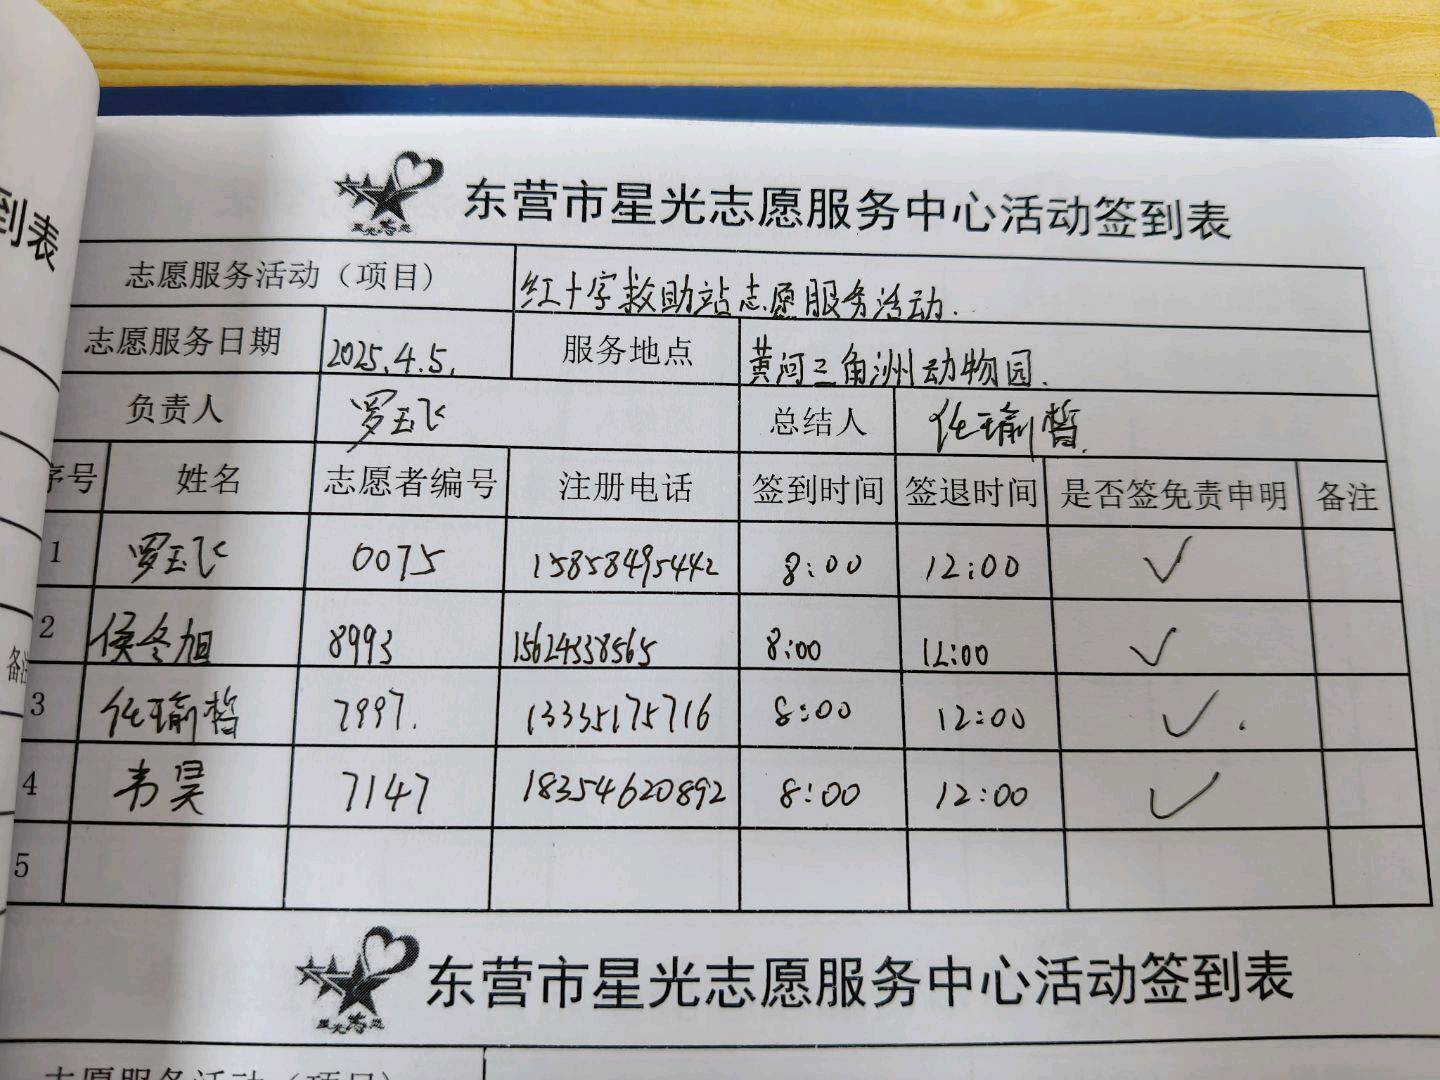 到表
备注
星光志愿
东营市星光志愿服务中心活动签到表
志愿服务活动（项目） 红十字救助站志愿服务活动.
志愿服务日期 2025.4.5. 服务地点 黄河三角洲动物园.
负责人 罗玉飞 总结人 任瑜皙.
序号 姓名 志愿者编号 注册电话 签到时间 签退时间 是否签免责申明 备注
1 罗玉飞 0075 15858495442 8:00 12:00 ✓
2 侯冬旭 8993 15624338565 8:00 12:00 ✓
3 任瑜皙 7997. 13335175716 8:00 12:00 ✓.
4 韦昊 7147 18354620892 8:00 12:00 ✓
5
星光志愿
东营市星光志愿服务中心活动签到表
志愿服务活动（项目）